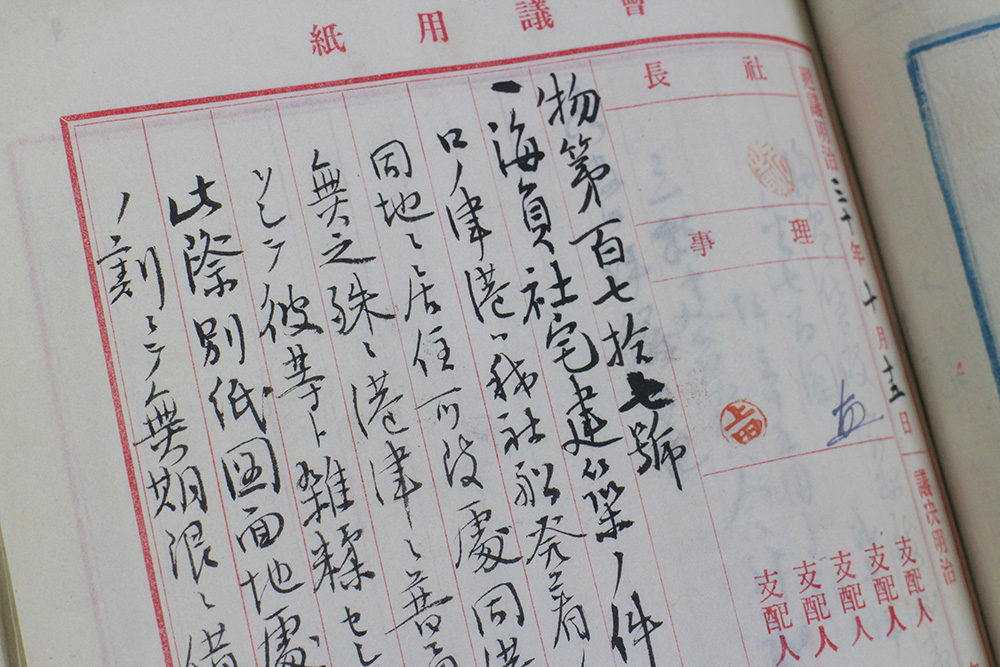 會議用紙
發議明治三十年十月十五日
議決明治
社長
理事
上田
支配人
支配人
支配人
支配人
支配人
物第百七拾七號
一海員社宅建築ノ件
口ノ津港ハ我社船発着ノ
同地ニ居住可致處同港
無之殊ニ港津ニ普
ソシテ彼等ト雑糅セシ
此際別紙図面地處
ノ割ニテ無期限ニ借